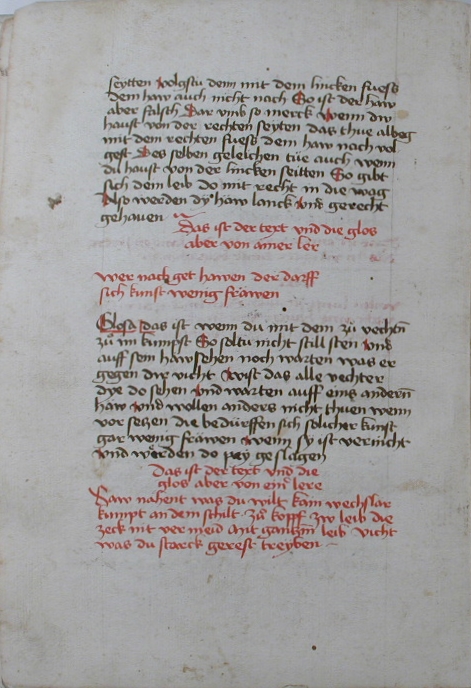 seytten volgstu denn mit dem lincken fuess
dem haw auch nicht nach So ist der haw
aber falsch Dar vmb so merck Wenn dw
haust von der rechten seyten das thue albeg
mit dem rechten fuess dem haw nach vol
gest Des selben geleichen tue auch wenn
du haust von der lincken seitten So gibt
sich dem leib do mit recht in die wag
Also werden dy haw lanck vnd gerecht
gehauen
Das ist der text vnd die glos
aber von ainer ler
Wer nach get hawen der darff
sich kunst wenig fräwen
Glosa das ist wenn du mit dem zu vechtn̄
zu im kumpst So soltu nicht still sten vnd
auff sein haw sehen noch warten was er
gegen dir vicht Wist das alle vechter
dye do sehen vnd warten auff eins andern̄
haw vnd wollen anders nicht thuen wenn
vor setzen die bedürffen sich solicher kunst
gar wenig fräwen wenn sy ist vernicht
vnd werden do pey geslagen
Das ist der text vnd die
glos aber von einer lere
Haw nahent was du wilt kain wechslar
kumpt an dein schilt zu kopff zw leib die
zeck nit vermeid Mit gantzm leib vicht
was du starck gerest treyben